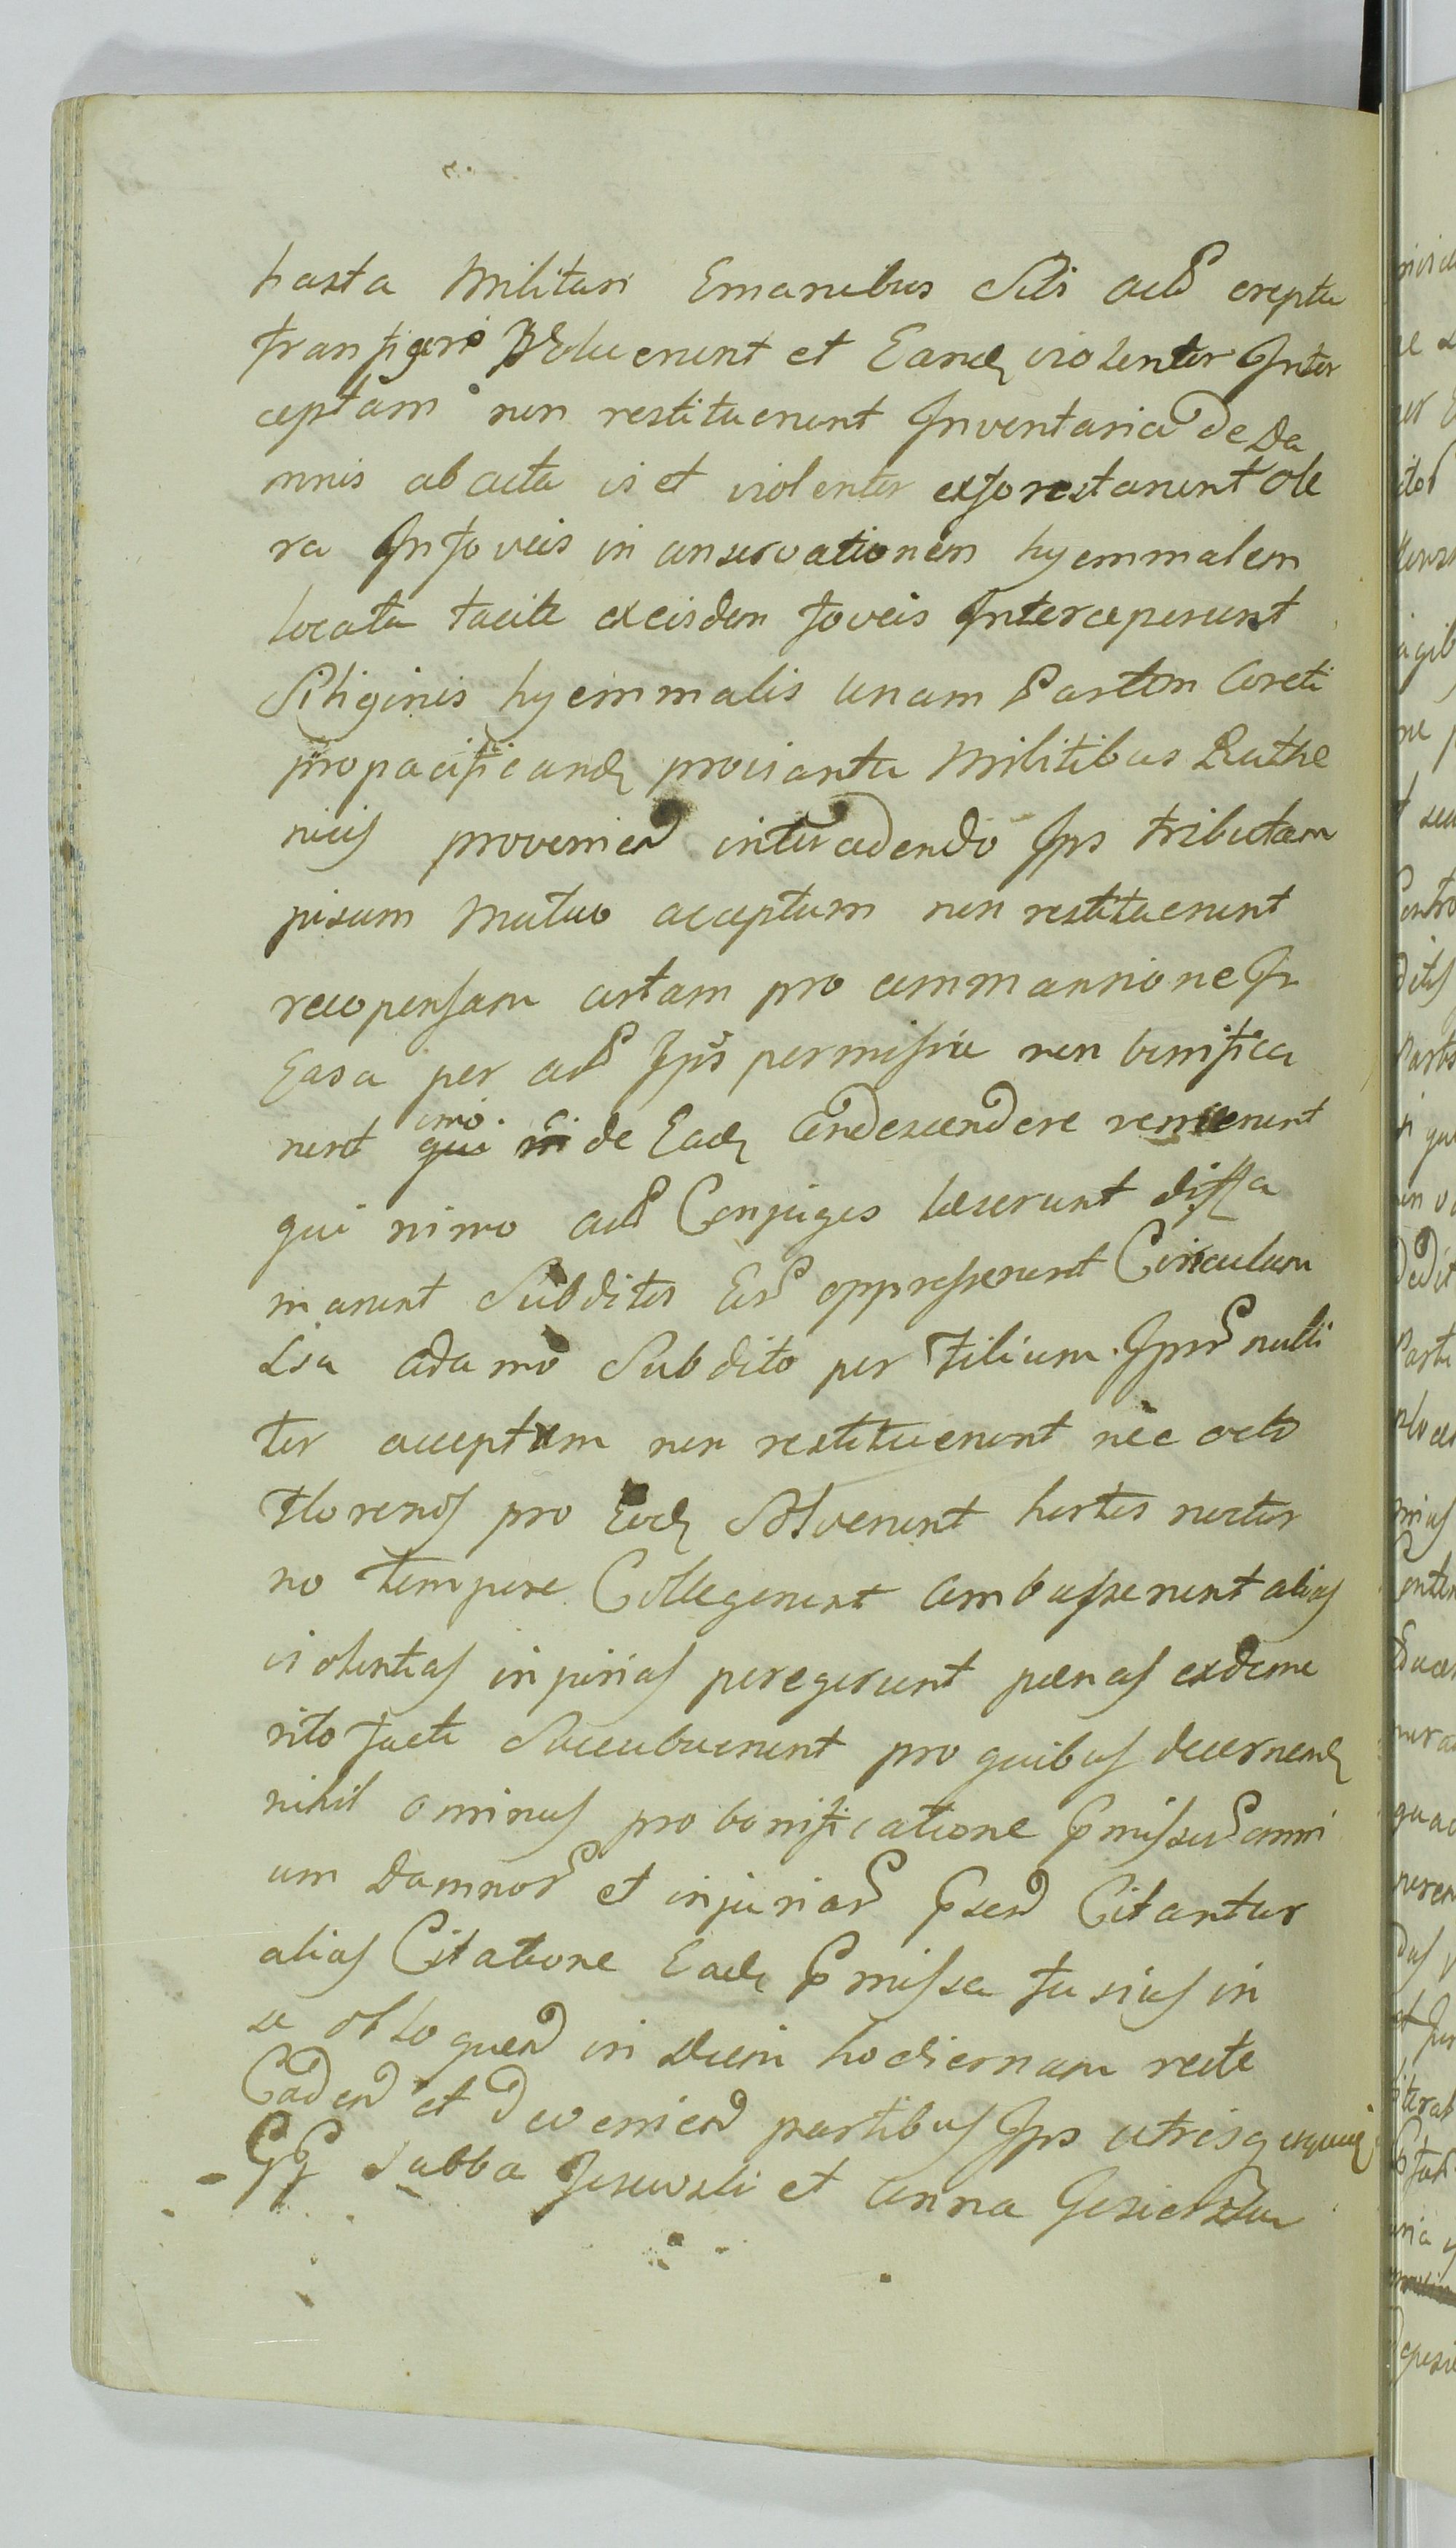 hasta Militari Emanibus Sibi act erepta
transfigere voluerunt et Eand violenter Inter
ceptam non restituerunt Inventaria de Da
mnis ab acta is et violenter exforestarunt ole
ra In foveis in conservationem hyemmalem
locata tacite ex eisdem foveis Interceperunt
Siliginis hyemmalis unam Partem Coreti
pro pacificand provianta Militibus Ruthe
nicis provenien intuadendo Ips tributam
pisum Mutuo acceptum non restituerunt
recopensam certam pro commansione In
Casa per act Ips permissive non bonifica
runt imo de Ead Condescendere renuerunt
qui nimo act Conjuges laeserunt diffa
marunt Subditos Eor oppresserunt Circulum
Lsa Adamo Subdito per Filium Ipsor nulli
ter acceptum non restituerunt nec octo
Florenos pro Eod Solverunt hortis noctur
no tempore Collegerunt combusserunt alias
violentias injurias peregerunt paenas ex deme
rito facti Succubuerunt pro quibus decernend
nihil ominus pro bonificatione pmissor omni
um Damnor et injuriar psen Citantur
alias Citatione Ead pmissa fusius in
se obloquen in Diem hodiernam recte
Caden et Devenien partibus Ips utrisq
GG Sabba Jesewski et Anna Gesierska